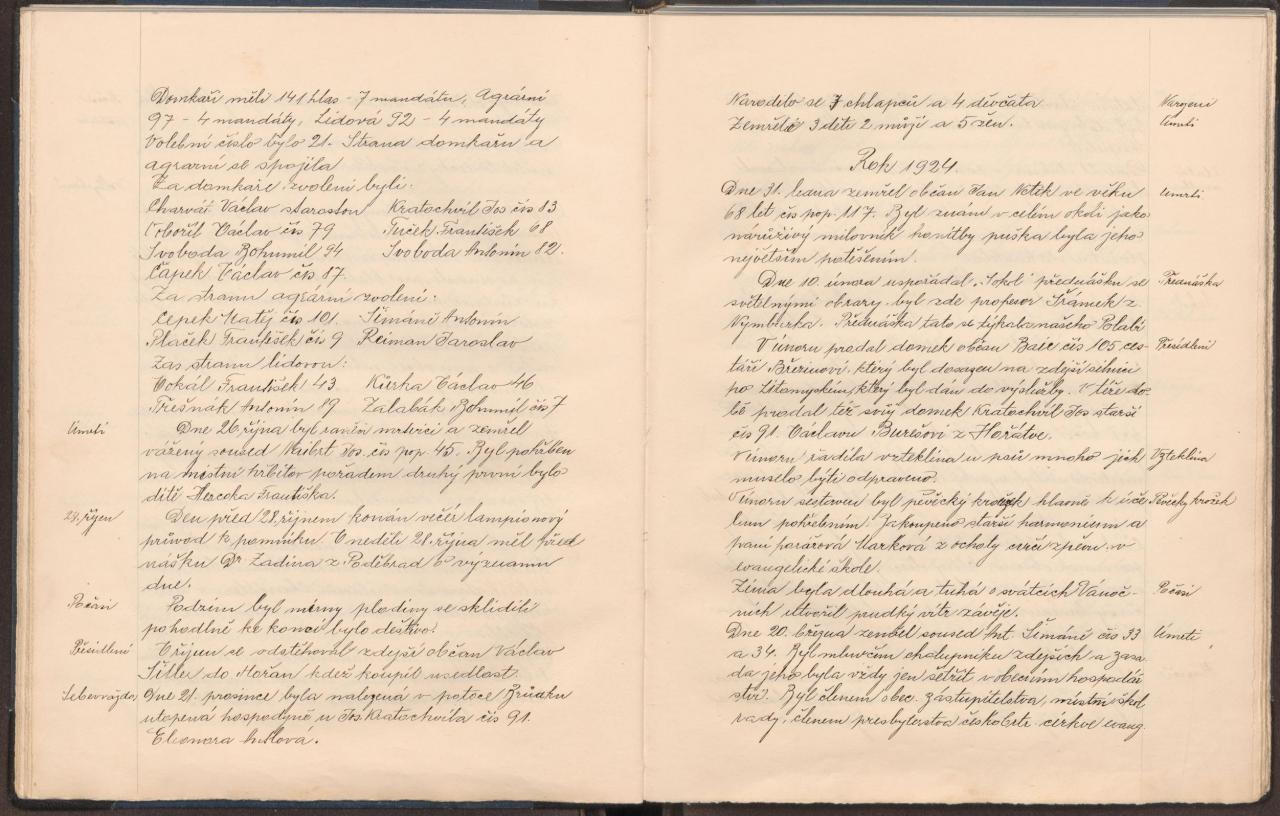 Domkaři měli 141 hlas – 7 mandátů, Agrární
97 – 4 mandáty, Lidová 92 – 4 mandáty
Volební číslo bylo 21. Strana domkařů a
agrarní se spojila
Za domkáře zvoleni byli:
Charvát Václav starostou Kratochvíl Jos čís 83
Tobořil Václav čís 79 Tuček František 68
Svoboda Bohumil 94 Svoboda Antonín 82.
Čapek Václav čís 87.
Za stranu agrární zvoleni:
Čepek Matěj čís 101. Šimáně Antonín
Plaček František čís 9 Reiman Jaroslav
Zas stranu lidovou:
Vokál František 43 Kůrka Václav 46
Třešnák Antonín 89 Zalabák Bohumil čís 7
Úmrtí
Dne 26 října byl raněn mrtvicí a zemřel
vážený soused Naibrt Jos. čís pop. 45. Byl pohřben
na místní hřbitov pořadem druhý první bylo
dítě Hercoka Františka.
28. říjen
Den před 28. říjnem konán večer lampionový
průvod k pomníku V neděli 28. října měl před
nášku Dr Zadina z Poděbrad o významu
dne.
Počasí
Podzim byl mírný plodiny se sklidili
pohodlně ke konci bylo deštivo.
Přesídlení
V říjnu se odstěhoval zdejší občan Václav
Šitler do Hořan kdež koupil usedlost.
Sebevražda
Dne 21. prosince byla nalezena v potoce
utopená hospodyně u Jos Kratochvíla čís 91.
Eleonora
Narodilo se 7 chlapců a 4 děvčata
Narození
Zemřelo 3 děti 2 muži a 5 žen.
Úmrtí
Rok 1924
Dne 31. ledna zemřel občan Jan ve věku
Úmrtí
68 let čís pop. 117. Byl znám v celém okolí jako
náruživý milovník honitby puška byla jeho
největším potěšením.
Dne 10. února uspořádal „Sokol" přednášku se
Přednáška
světelnými obrazy. byl zde profesor Šrámek z
Nymburka. Přednáška tato se týkala našeho Polabí
V únoru prodal domek občan Baic čís 105 ces-
Přesídlení
táři Březinovi, který byl dosazen na zdejší silnici
po Litomyském, který byl dán do výslužby. V téže do-
bě prodal též svůj domek Kratochvíl Jos starší
čís 91. Václavu Burešovi z Hořátve.
V únoru řádila vzteklina u psů mnoho jich
Vzteklina
muselo býti odpraveno.
V únoru sestaven byl pěvecký kroužek hlavně k úče
Pěvecký kroužek
lum pohřebním. Zakoupeno starší harmonium a
paní farářová Marková z ochoty cvičí zpěvu v
evangelické škole.
Zima byla dlouhá a tuhá o svátcích Vánoč-
Počasí
ních utvořil prudký vítr závěje.
Dne 20. března zemřel soused Ant. Šimáně čís 33
Úmrtí
a 34. Byl mluvčím chalupníku zdejších a zása-
da jeho byla vždy jen šetřit v obecním hospodář
ství. Byl členem obec. zastupitelstva, místní škol
rady, členem presbyterstva českobrtr. církve evang.